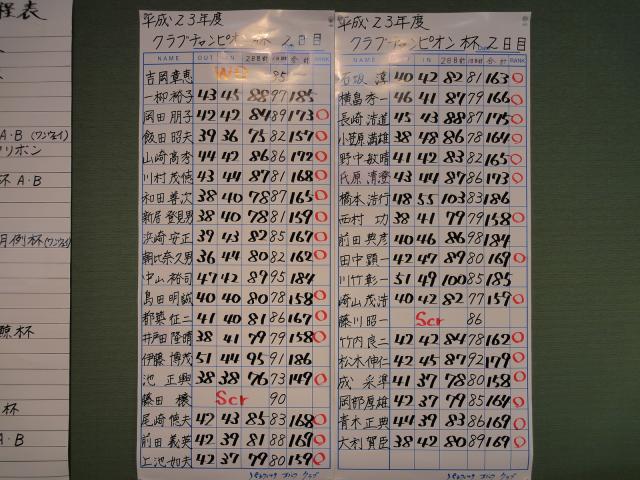 程表
A・B (ワンウェイ)
リボン
杯 A・B
月例杯(ワンウェイ)
杯
杯
A・B
平成23年度
クラブチャンピオン杯 2日目
NAME OUT IN 2日目計 合計 RANK
吉岡章恵 WD 95 —
一柳裕子 43 45 88 97 185
岡田朋子 42 42 84 89 173 ○
飯田昭夫 39 36 75 82 157 ○
山崎高秀 44 42 86 86 172 ○
川村茂慎 43 44 87 81 168 ○
和田善次 38 40 78 87 165 ○
新居登見男 38 40 78 81 159 ○
浜崎安正 39 43 82 85 167 ○
朝比奈久男 36 44 80 82 162 ○
中山裕司 47 42 89 95 184
島田明誠 40 40 80 78 158 ○
都築征二 41 40 81 86 167 ○
井戸田隆晴 38 41 79 79 158 ○
伊藤博茂 51 44 95 91 186
池正興 38 38 76 73 149 ○
藤田穣 Scr 90
尾崎慎夫 42 43 85 83 168 ○
前田義英 42 39 81 88 169 ○
上池如夫 42 37 79 80 159 ○
平成23年度
クラブチャンピオン杯 2日目
NAME OUT IN 2日目計 合計 RANK
石坂淳 40 42 82 81 163 ○
横畠秀一 46 41 87 79 166 ○
長崎浩道 45 43 88 87 175 ○
小笠原満雄 38 48 86 78 164 ○
野中敏晴 41 42 83 82 165 ○
氏原清澄 43 44 87 86 173 ○
橋本浩行 48 55 103 83 186
西村功 38 41 79 79 158 ○
前田典彦 40 46 86 98 184
田中顕一 42 47 89 80 169 ○
川竹彰一 51 49 100 85 185
崎山茂浩 40 42 82 77 159 ○
藤川昭一 Scr 86
竹内良二 42 42 84 78 162 ○
松木伸仁 42 45 87 92 179 ○
成采準 41 37 78 80 158 ○
岡部厚雄 42 37 79 85 164 ○
青木正典 44 39 83 86 169 ○
大利賢臣 38 42 80 89 169 ○